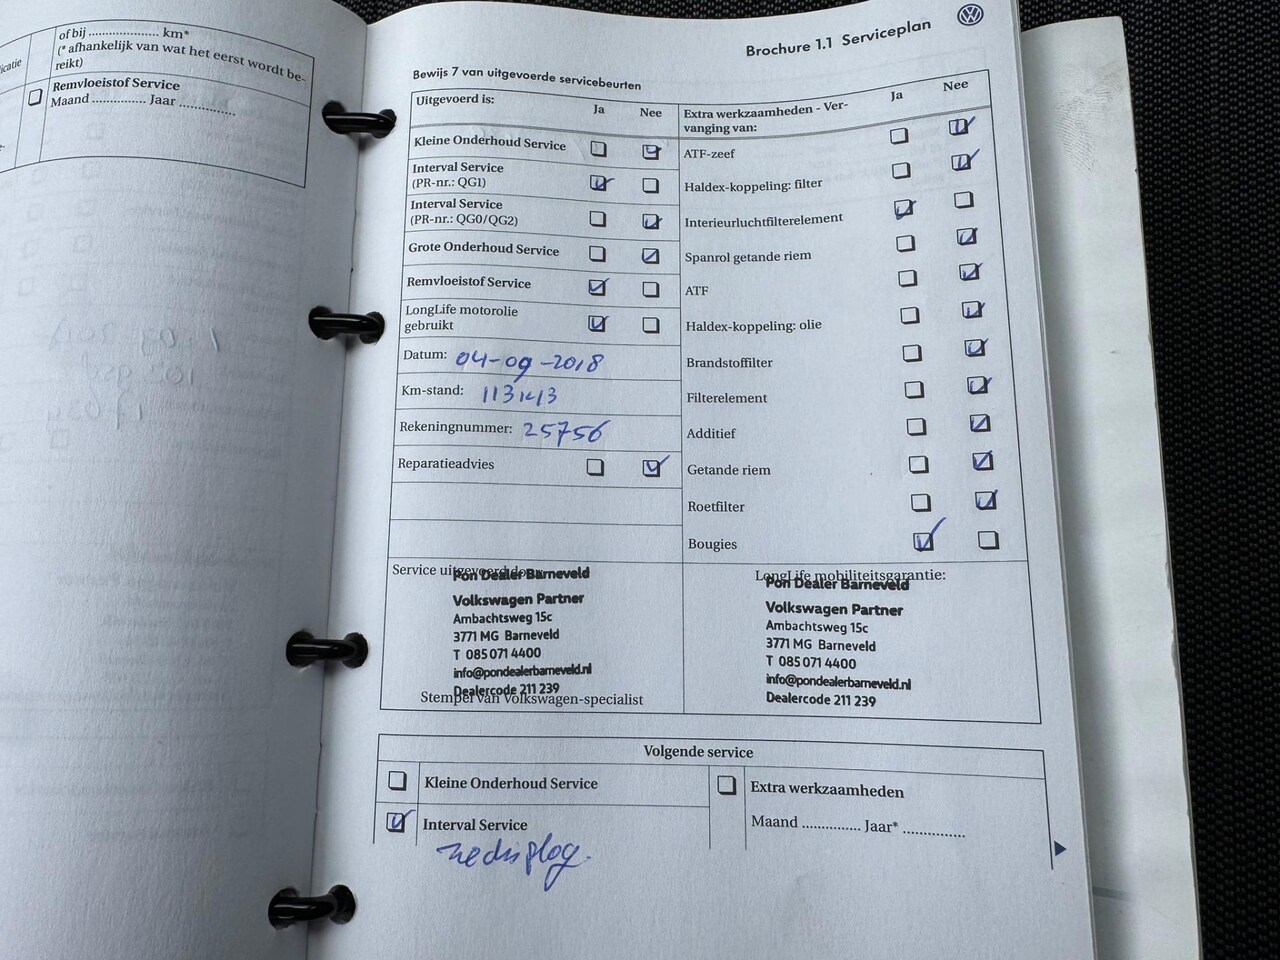 of bij ................... km*
(* afhankelijk van wat het eerst wordt be-
reikt)
Remvloeistof Service
Maand .............. Jaar ...............
Brochure 1.1 Serviceplan
Bewijs 7 van uitgevoerde servicebeurten
Uitgevoerd is:
Ja
Nee
Kleine Onderhoud Service
Interval Service
(PR-nr.: QG1)
Interval Service
(PR-nr.: QG0/QG2)
Grote Onderhoud Service
Remvloeistof Service
LongLife motorolie
gebruikt
Datum: 04-09-2018
Km-stand:
Rekeningnummer: 25756
Reparatieadvies
Extra werkzaamheden - Ver-
vanging van:
Ja
Nee
ATF-zeef
Haldex-koppeling: filter
Interieurluchtfilterelement
Spanrol getande riem
ATF
Haldex-koppeling: olie
Brandstoffilter
Filterelement
Additief
Getande riem
Roetfilter
Bougies
Service uitgevoerd door:
Pon Dealer Barneveld
Volkswagen Partner
Ambachtsweg 15c
3771 MG Barneveld
T 085 071 4400
info@pondealerbarneveld.nl
Dealercode 211 239
Stempel van Volkswagen-specialist
LongLife mobiliteitsgarantie:
Pon Dealer Barneveld
Volkswagen Partner
Ambachtsweg 15c
3771 MG Barneveld
T 085 071 4400
info@pondealerbarneveld.nl
Dealercode 211 239
Volgende service
Kleine Onderhoud Service
Interval Service
Extra werkzaamheden
Maand .............. Jaar* ...............